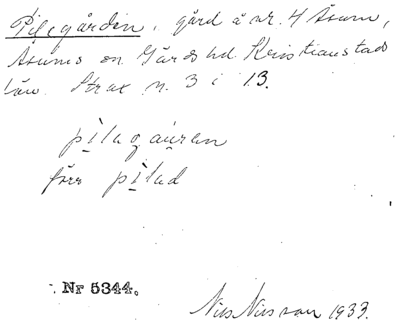 Pilegården, gård å nr. 4 Åsum,
Åsums sn Gärds hd. Kristianstads
län. Strax n. 3 i 13.
pilagåuren
förr pilad
Nr 5344.
Nils Nilsson 1933.